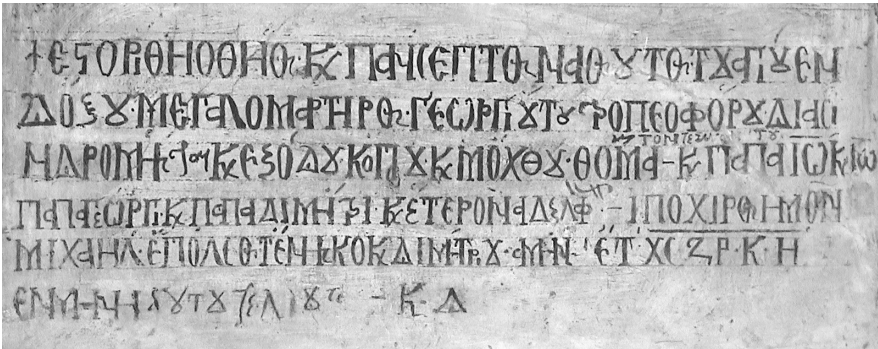 + ΕϚΟΡΙΘΗ Ο ΘΗΟς Κ ΠΑΝCΕΠΤΟς ΝΑΟς ȢΤΟς ΤȢ ΑΓΙȢ ΕΝ
ΔΟξȢ ΜΕΓΑΛΟΜΑΡΤΗΡΟς ΓΕΩΡΓΙȢ ΤȢ ΤΡΟΠΕΟΦΟΡȢ ΔΙΑ CΙ
ΝΔΡΟΜΗ Κ ΕξΟΔȢ Κ ΚΟΠȢ Κ ΜΟΧΘȢ ΘΟΜΑ Κ ΠΑΠΑ ΙΩ Κ ΙΩ
ΠΑΠΑ ΓΕΩΡΓΙ Κ ΠΑΠΑ ΔΙΜΗΤΡΙ Κ ΕΤΕΡΟΝ ΑΔΕΛΦ ΙΠΟ ΧΙΡΟς ΗΜΟΝ
ΜΙΧΑΗΛ Ε ΠΟΛΕΟς ΤΕ Κ ΔΙΜΗΤΡΙȢ ΑΜΗΝ ΕΤ ΧC ΖΡΚΗ
ΕΝ ΜΗΝΙ ΙȢΛΙȢ Κ Δ